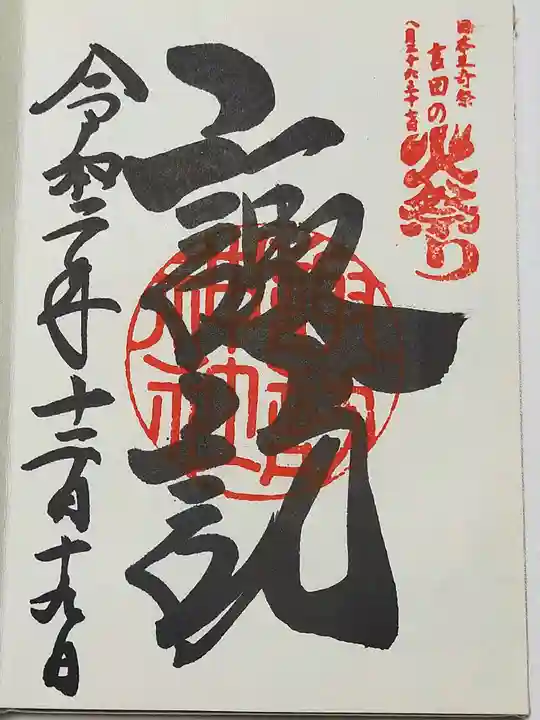 日本三奇祭
吉田の
火祭り
八月二十六二十七日
諏訪神社
令和二年十二月十九日